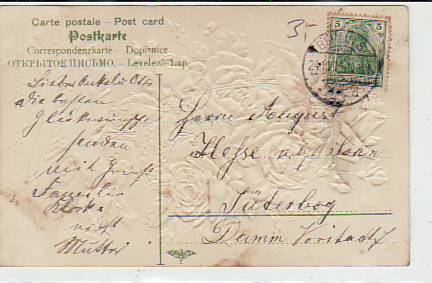 Carte postale - Post card
Postkarte
Correspondenzkarte - Dopisnice
ОТКРЫТОЕ ПИСЬМО. - Levelező-Lap
3,-
5 5
Lieber Onkel u
die besten
Glückwünsche
senden
mit Gruß
Familie
nebst
Mutter
Herrn August
Hesse
Jüterbog
Damm Vorstadt